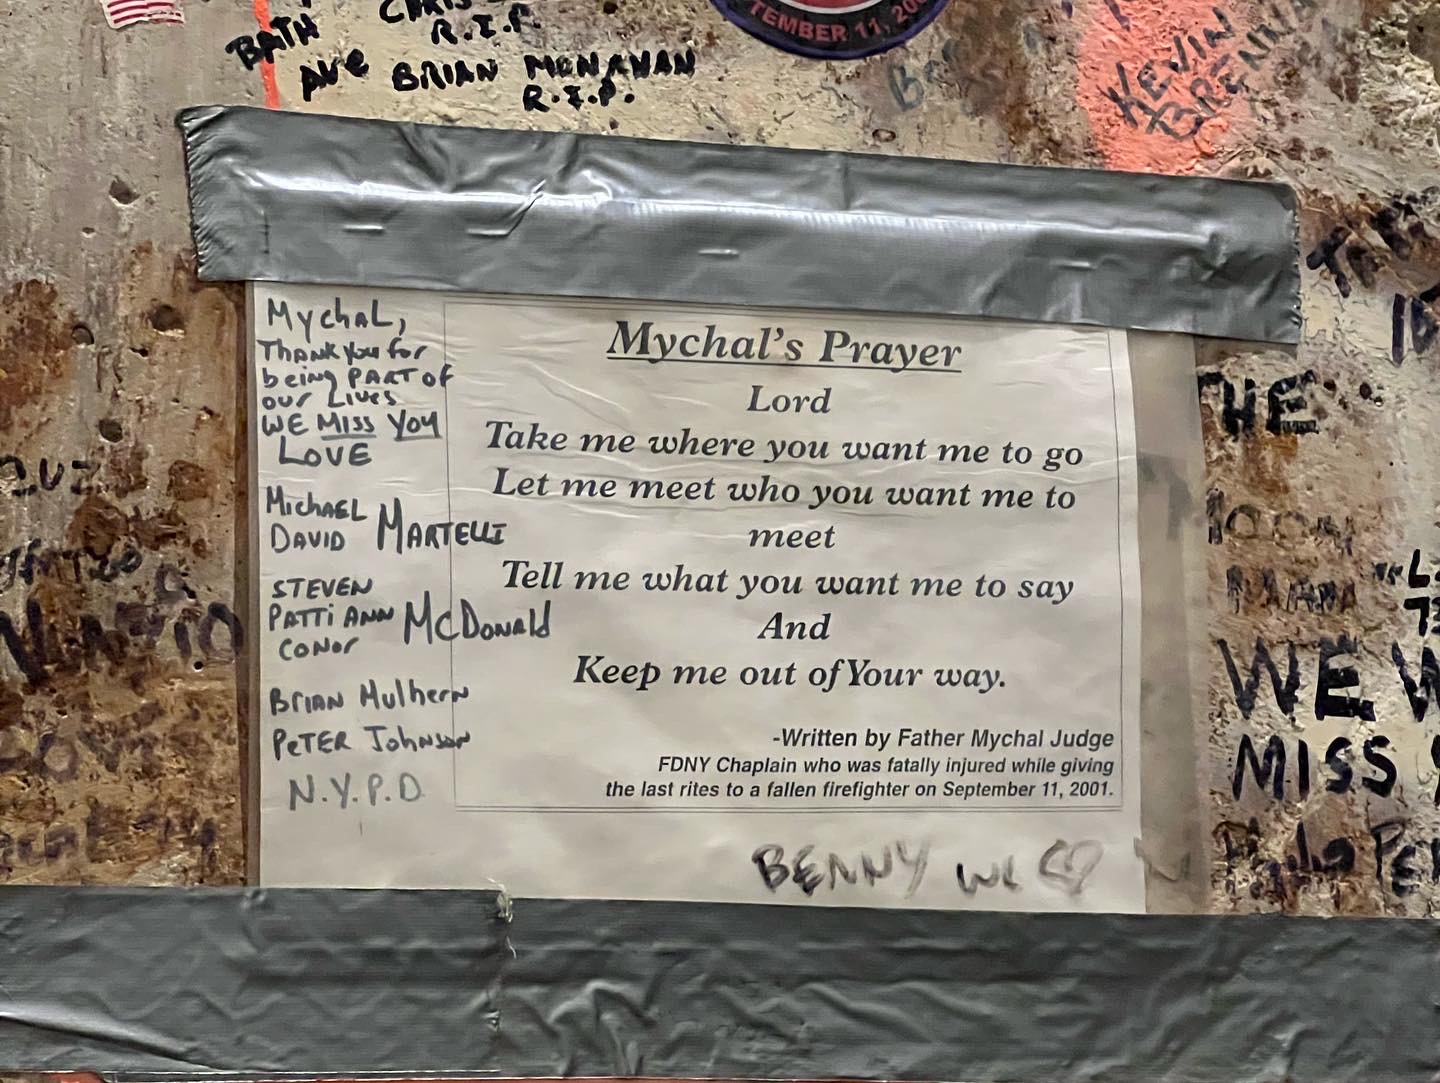 CHRIS
R.I.P.
TEMBER 11, 200
BATH
AVE BRIAN MONAHAN
R.I.P.
KEVIN
BRENNAN
Mychal,
Thank You for
being PART OF
our Lives
WE MISS YOU
LOVE
Michael
DAVID MARTELLI
STEVEN
PATTI ANN McDonald
CONOR
BRIAN Mulhern
PETER Johnson
N.Y.P.D
Mychal's Prayer
Lord
Take me where you want me to go
Let me meet who you want me to
meet
Tell me what you want me to say
And
Keep me out of Your way.
-Written by Father Mychal Judge
FDNY Chaplain who was fatally injured while giving
the last rites to a fallen firefighter on September 11, 2001.
BENNY WE
HE
WE W
MISS Y